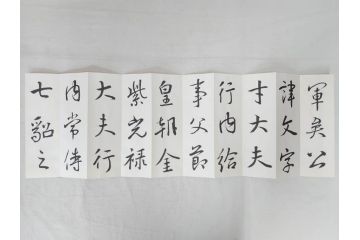 軍矣公
諱文字
才大夫
行内给
事父節
皇朝金
紫光禄
大夫行
内常侍
七貂之